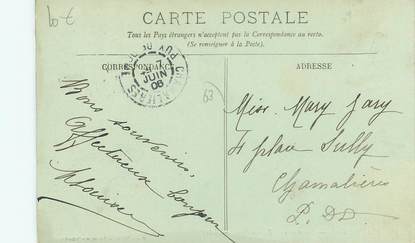 CARTE POSTALE
Tous les Pays étrangers n'acceptent pas la Correspondance au recto.
(Se renseigner à la Poste).
CORRESPONDANCE
ADRESSE
CHAMALIERES
PUY DE DOME
7
JUIN
06
63
Bons souvenirs
affectueux
Miss. Mary Jary
4 place Sully
Chamalières
P. DD